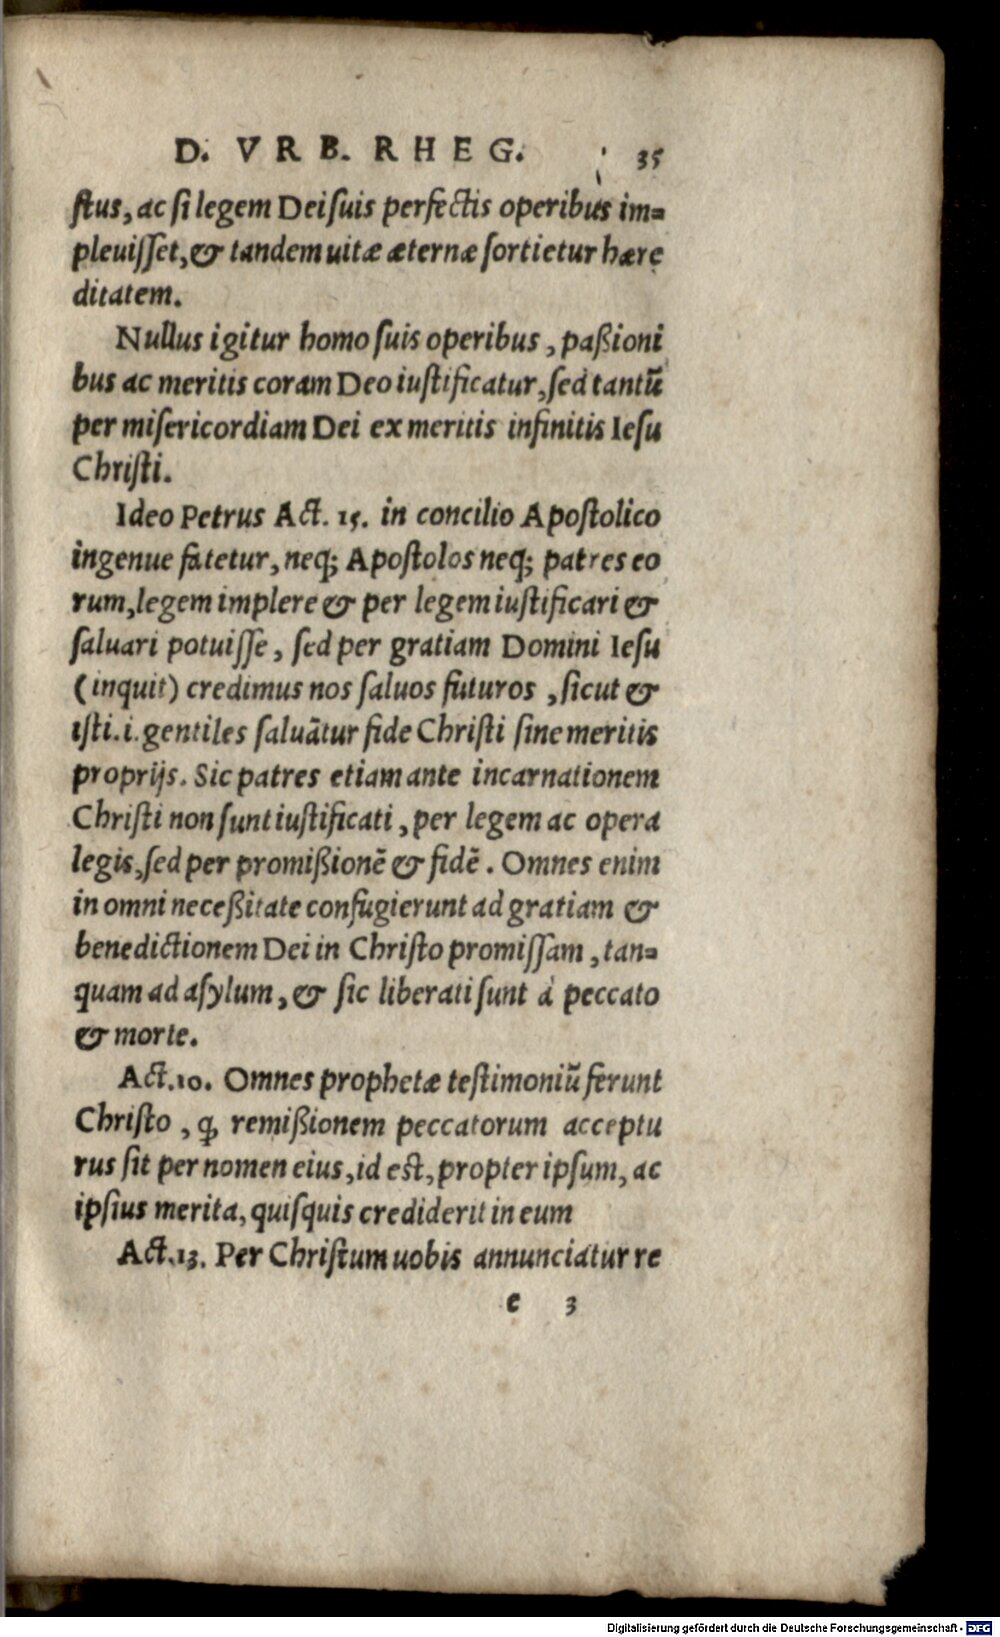 D. VRB. RHEG. 35
ſtus, ac ſi legem Dei ſuis perfectis operibus im-
pleuiſſet, & tandem uitæ æternæ ſortietur hære
ditatem.
Nullus igitur homo ſuis operibus, paßioni
bus ac meritis coram Deo iuſtificatur, ſed tantũ
per miſericordiam Dei ex meritis infinitis Ieſu
Chriſti.
Ideo Petrus Act. 15. in concilio Apoſtolico
ingenue fatetur, neq; Apoſtolos neq; patres eo
rum, legem implere & per legem iuſtificari &
ſaluari potuiſſe, ſed per gratiam Domini Ieſu
(inquit) credimus nos ſaluos futuros, ſicut &
iſti. i. gentiles ſaluãtur fide Chriſti ſine meritis
proprijs. Sic patres etiam ante incarnationem
Chriſti non ſunt iuſtificati, per legem ac opera
legis, ſed per promißionẽ & fidẽ. Omnes enim
in omni neceßitate confugierunt ad gratiam &
benedictionem Dei in Chriſto promiſſam, tan-
quam ad aſylum, & ſic liberati ſunt à peccato
& morte.
Act. 10. Omnes prophetæ teſtimoniũ ferunt
Chriſto, ꝙ remißionem peccatorum acceptu
rus ſit per nomen eius, id eſt, propter ipſum, ac
ipſius merita, quiſquis crediderit in eum
Act. 13. Per Chriſtum uobis annunciatur re
e 3
Digitalisierung gefördert durch die Deutsche Forschungsgemeinschaft - DFG